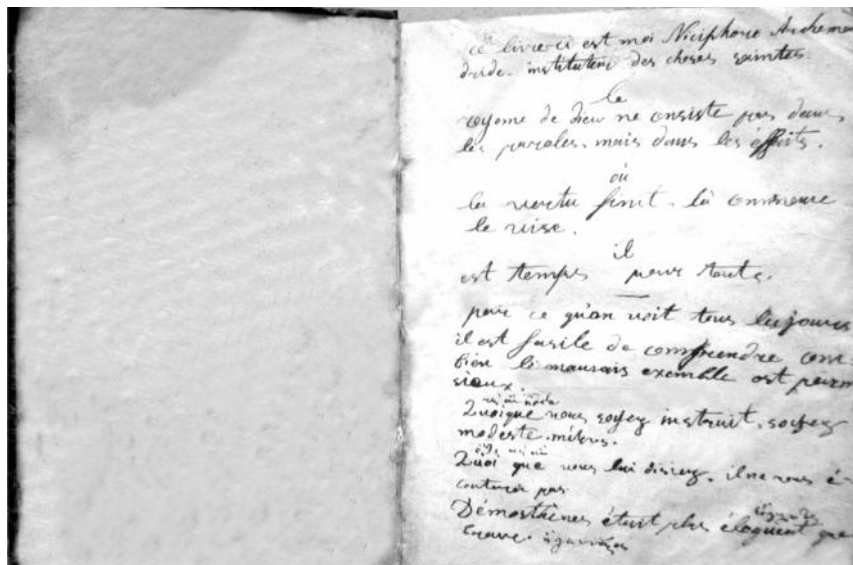 ce livre ci est moi Niciphore Archeman
dride. instituteur des choses saintes
le
royome de dieu ne consiste pas dans
les paroles. mais dans les éffaits.
où
la vertu finit. là commence
le vise.
il
est temps pour touts.
pour ce qu'on voit tous les jours
il est fasile de comprendre com-
bien le mauvais exemble est perni
sieux.
Quoique vous soyez instruit. soyez
modeste.
Quoi que vous lui disiez. il ne vous é-
coutera pas.
Démosthènes étoit plus éloquent que